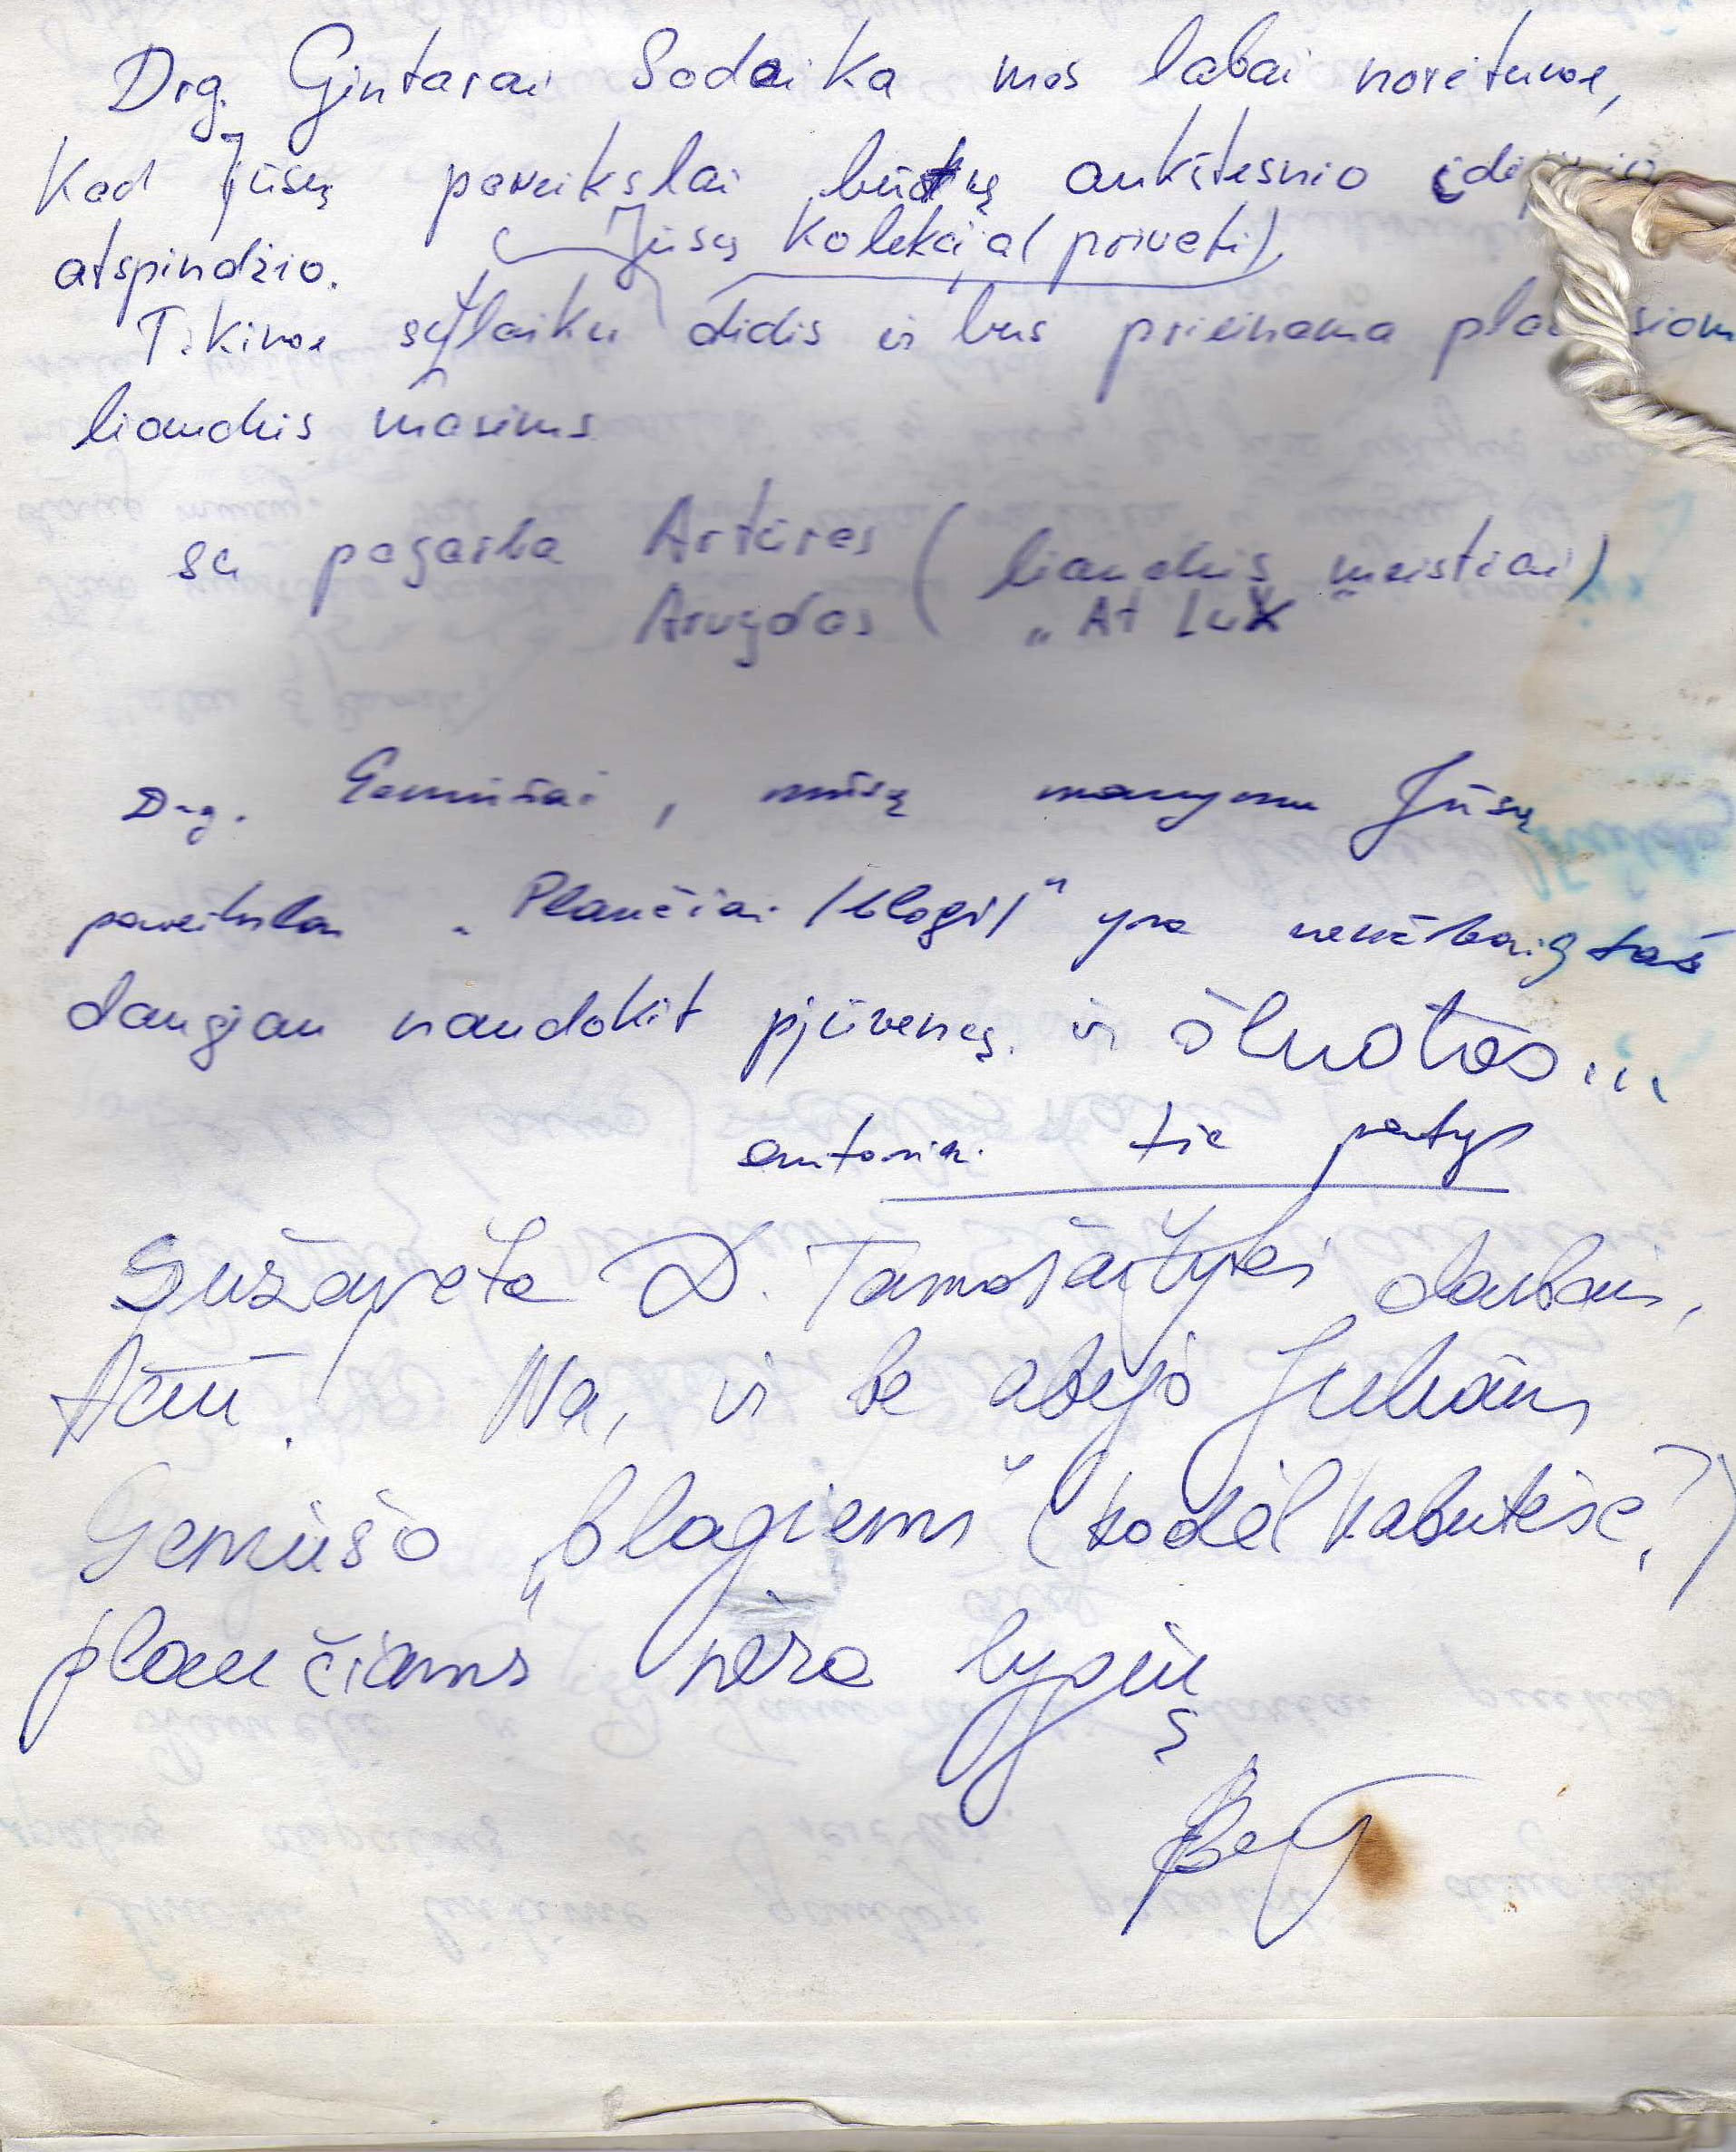 Drg. Gintarai Sodeika mes labai norėtume,
Kad Jūsų paveikslai būtų ankštesnio
atspindžio. Jūsų Kolekcija (privati)
Tikime sųlaiku didis ir bus prieinama
liaudies masėms
su pagarba Artūras ( liaudies meistrai)
Arvydas „At Lux"
Drg. Gemūšai, mūsų manymu Jūsų
paveikslas „Plaučiai /blogi/" yra neužbaigtas
daugiau naudokit pjūvenų ir šluotos...
autoriai tie patys
Sužavėta D. Tamošaitytės darbais,
Ačiū. Na, ir be abejo
Gemušo „blogiems" (kodėl kabutėse?)
plaučiams nėra lygių